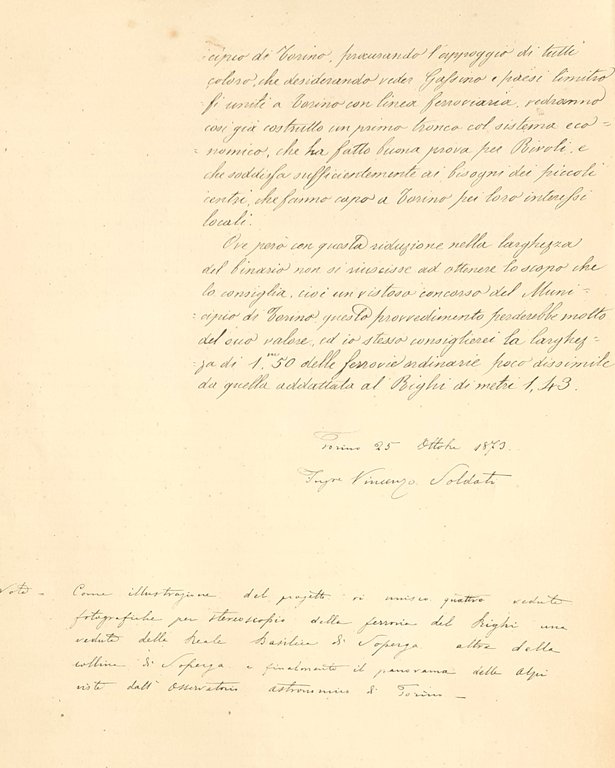 cipio di Torino, procurando l'appoggio di tutti
coloro, che desiderando veder Gassino e paesi limitro
fi uniti a Torino con linea ferroviaria, vedranno
così già costrutto un primo tronco col sistema eco=
=nomico, che ha fatto buona prova per Rivoli, e
che soddisfa sufficientemente ai bisogni dei piccoli
centri, che fanno capo a Torino pei loro interessi
locali.
Ove però con questa riduzione nella larghezza
del binario non si riuscisse ad ottenere lo scopo che
la consiglia, cioè un vistoso concorso del Muni=
=cipio di Torino questo provvedimento perderebbe molto
del suo valore, ed io stesso consiglierei la larghez=
=za di 1.m50 delle ferrovie ordinarie poco dissimile
da quella addattata al Righi di metri 1,43.
Torino 25 Ottobre 1873.
Ingre Vincenzo Soldati
Nota = Come illustrazione del progetto si unisco quattro vedute
fotografiche per stereoscopio della ferrovia del Righi una
veduta della Reale Basilica di Soperga altra della
collina di Soperga e finalmente il panorama delle Alpi
viste dall'Osservatorio astronomico di Torino _